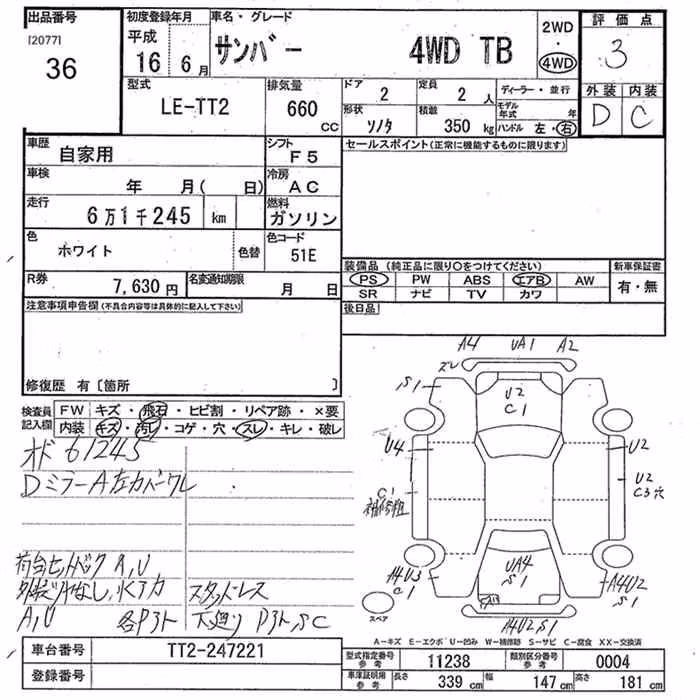 出品番号 初度登録年月 車名・グレード 2WD 評価点
[2077]
36 平成 16 6月 サンバー 4WD TB 4WD 3
型式 排気量 ドア 定員 ディーラー・並行 外装 内装
LE-TT2 660 cc 2 2人 モデル年式 年 D C
形状 積載 ハンドル 左・右
ソノタ 350 kg
車歴 自家用 シフト F5 セールスポイント(正常に機能するものに限ります)
車検 年 月( 日) 冷房 AC
走行 6万1千245 km 燃料 ガソリン
色 ホワイト 色替 色コード 51E
装備品(純正品に限り○をつけてください) 新車保証書
R券 7,630円 名変通知期限 月 日 PS PW ABS エアB AW 有・無
SR ナビ TV カワ
注意事項申告欄(不具合内容等は具体的に記入して下さい) 後日品
修復歴 有〔箇所 〕
検査員 FW キズ・飛石・ヒビ割・リペア跡・×要
記入欄 内装 キズ・汚レ・コゲ・穴・スレ・キレ・破レ
オド 61245
Dミラー A 左カバーワレ
A4 UA1 A2
スレ
S1
U2
C1
U4 U2
C1 U2
補修粗 C3穴
A4U3 UA4 A4U2
C1 S1 S1
スペア A4U2S1
A,U
スタッドレス
A,U 各Pスト 下廻り Pスト,SC
A-キズ E-エクボ U-凹み W-補修跡 S-サビ C-腐食 XX-交換済
車台番号 TT2-247221
型式指定番号 参考 11238 類別区分番号 参考 0004
登録番号
車庫証明用 参考 長さ 339 cm 幅 147 cm 高さ 181 cm